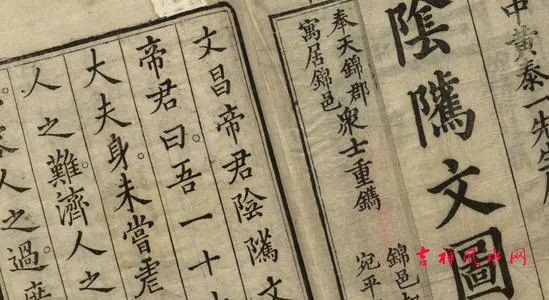 中黃泰一先生
陰隲文圖
奉天錦郡衆士重鐫
寓居錦邑
錦邑
宛平
文昌帝君陰隲文
帝君曰。吾一十
大夫身。未嘗虐
人之難。濟人之
人之過。
吉祥风水网